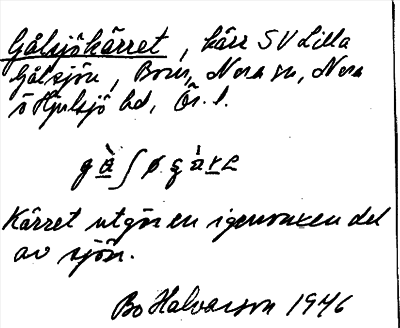 Gålsjökärret, kärr SV Lilla
Gålsjön, Bours, Nora sn, Nora
o Hjulsjö bd, Ör. l.
Kärret utgör en igenvuxen del
av sjön.
Bo Halvarson 1946